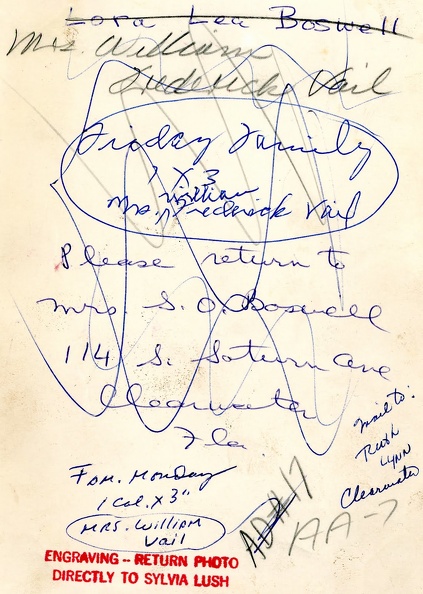 Lora Lea Boswell
Mrs. William
Frederick Vail
Friday Family
1 X 3
Mrs. William Frederick Vail
Please return to
Mrs. S. O. Boswell
114 S. Saturn Ave
Clearwater
Fla.
mail to:
RUTH
LYNN
Clearwater
Fam. Monday
1 Col. X 3"
MRS. WILLIAM
Vail
AD#17
AA-7
ENGRAVING -- RETURN PHOTO
DIRECTLY TO SYLVIA LUSH